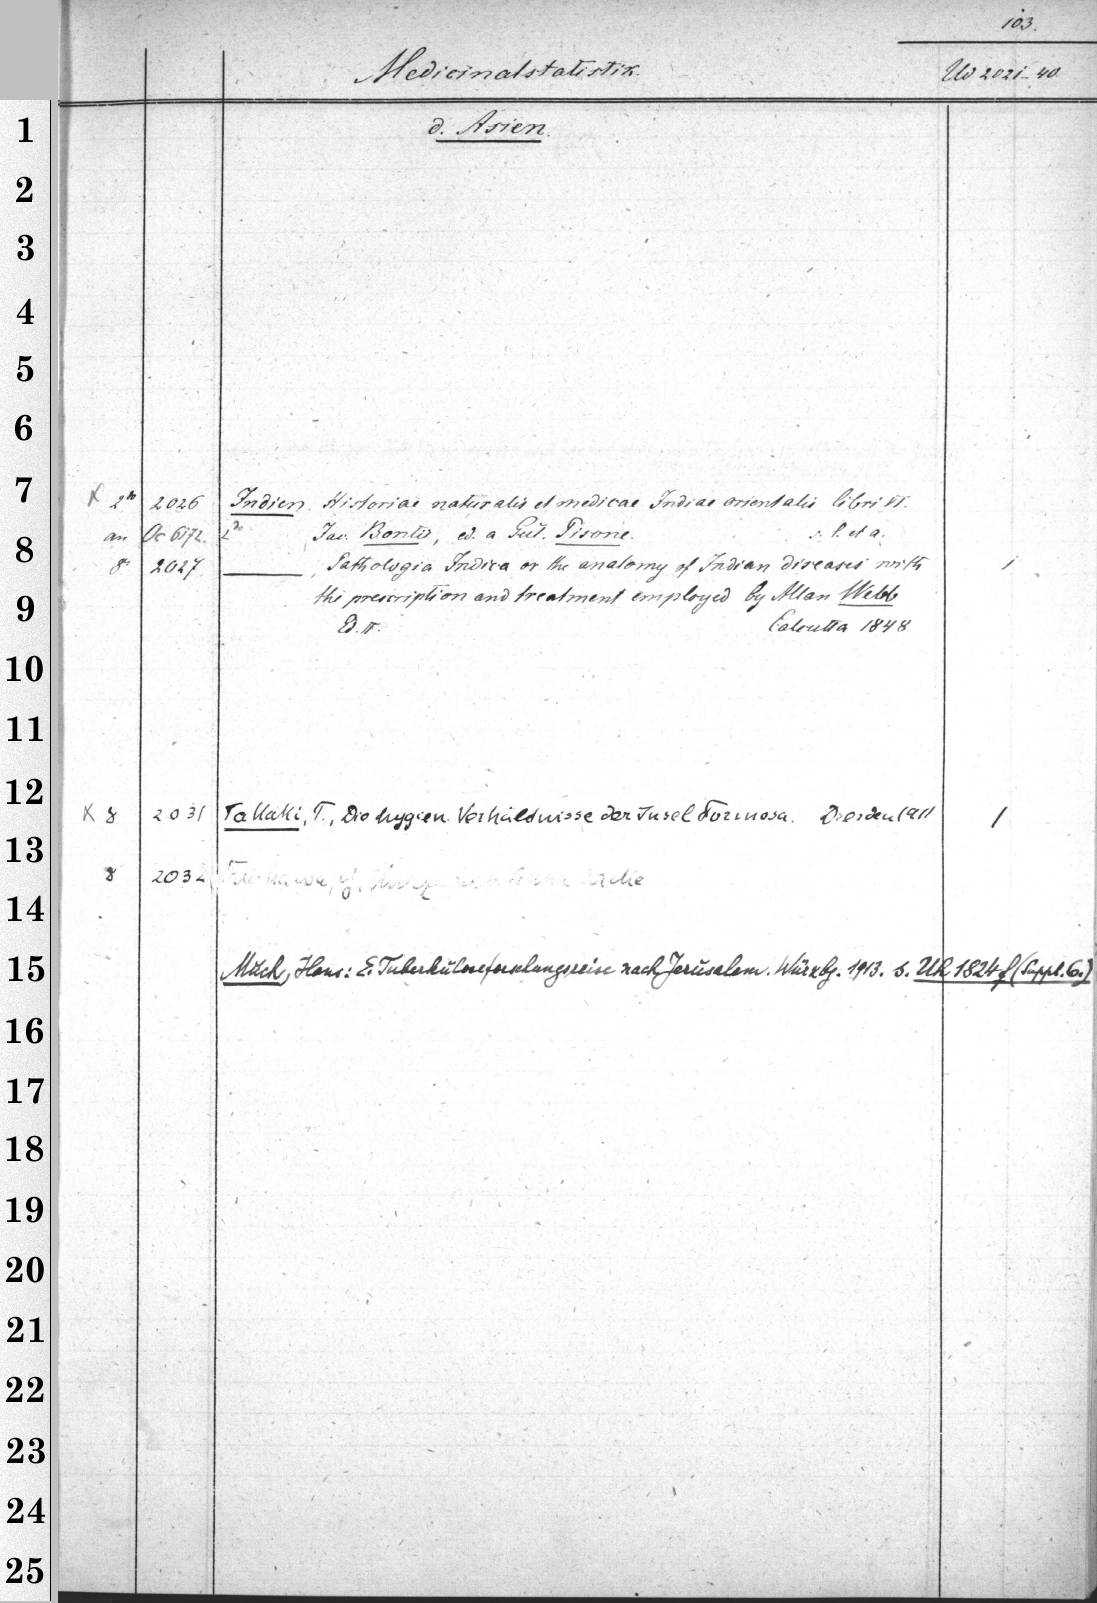 103.
Medicinalstatistik. Ud 2021-40.
1 d. Asien.
2
3
4
5
6
7 K 2° 2026 Indien. Historiae naturalis et medicae Indiae orientalis libri VI.
8 an Oc 6172. 2° Jac. Bontii, ed. a Gul. Pisone. s. l. et a.
8° 2027 ———, Pathologia Indica or the anatomy of Indian diseases with 1
9 the prescription and treatment employed by Allan Webb
Ed. II. Calcutta 1848
10
11
12 K 8 2031 Takaki, T., Die hygien. Verhältnisse der Insel Formosa. Dresden 1911 1
13
8 2032
14
15 Much, Hans: E. Tuberkuloseforschungsreise nach Jerusalem. Würzbg. 1913. s. Uk 1824 f (Suppl. 6.)
16
17
18
19
20
21
22
23
24
25